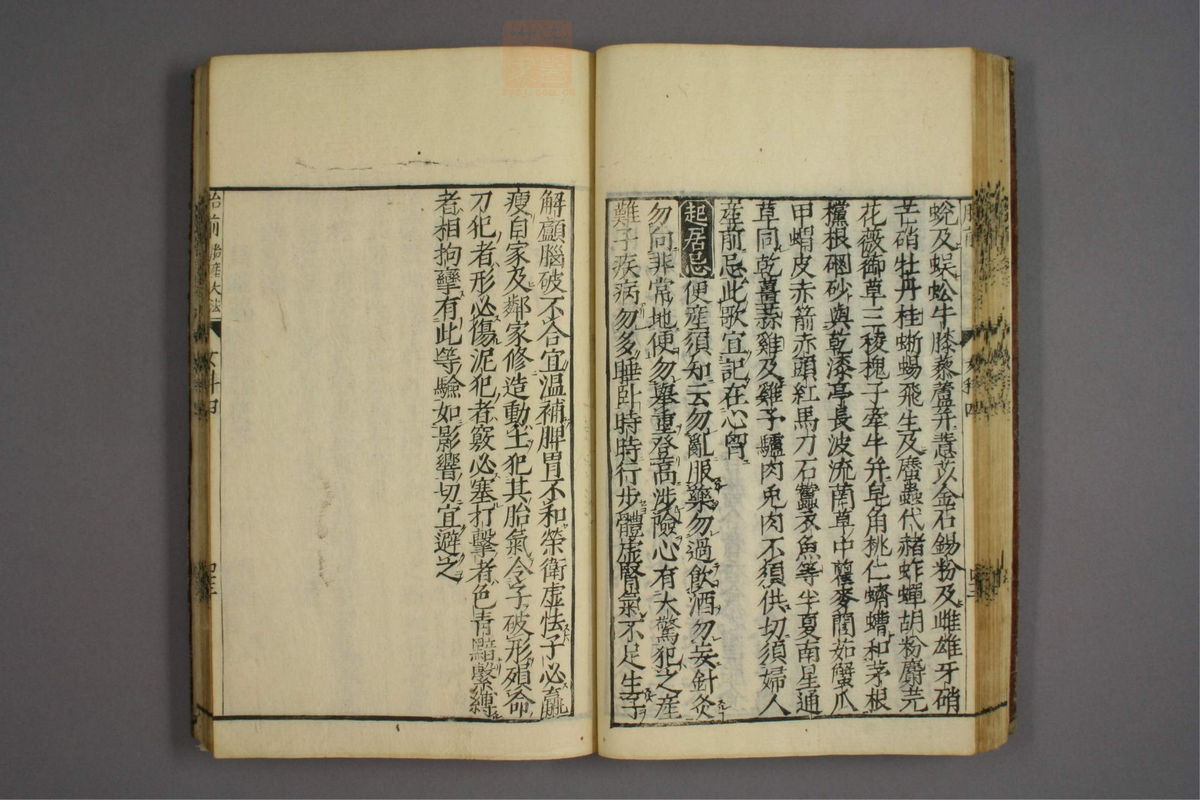 蛻及蜈蚣牛膝藜蘆并薏苡金石錫粉及雌雄牙硝
芒硝牡丹桂蜥蜴飛生及䗪蟲代赭蚱蟬胡粉麝芫
花薇御草三稜槐子牽牛并皂角桃仁蠐螬和茅根
欓根硇砂與乾漆亭長波流茵草中瞿麥䕡茹蟹爪
甲蝟皮赤箭赤頭紅馬刀石蠶衣魚等半夏南星通
草同乾薑蒜雞及雞子驢肉兎肉不須供切須婦人
産前忌此歌宜記在心胷
起居忌 便産須知云勿亂服藥勿過飲酒勿妄針灸
勿向非常地便勿舉重登高涉險心有大驚犯之産
難子疾病勿多睡卧時時行步體虛腎氣不足生子
解顱腦破不合宜温補脾胃不和榮衛虛怯子必羸
瘦自家及鄰家修造動土犯其胎氣令子破形殞命
刀犯者形必傷泥犯者竅必塞打擊者色青黯繫縛
者相拘攣有此等驗如影響切宜避之
胎前 胎産大法 女科四